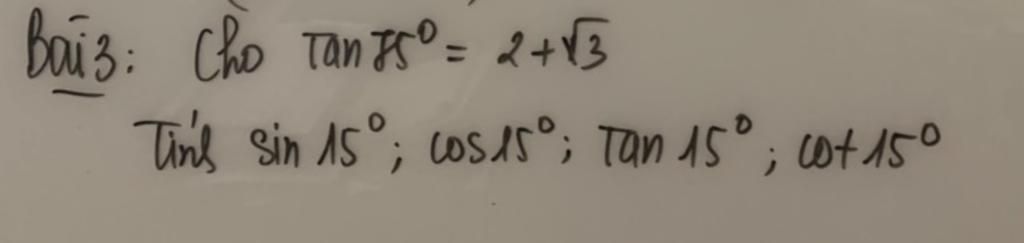 Bài 3: Cho Tan 75° = 2 + √3
Tính sin 15°; cos 15°; Tan 15°; cot 15°